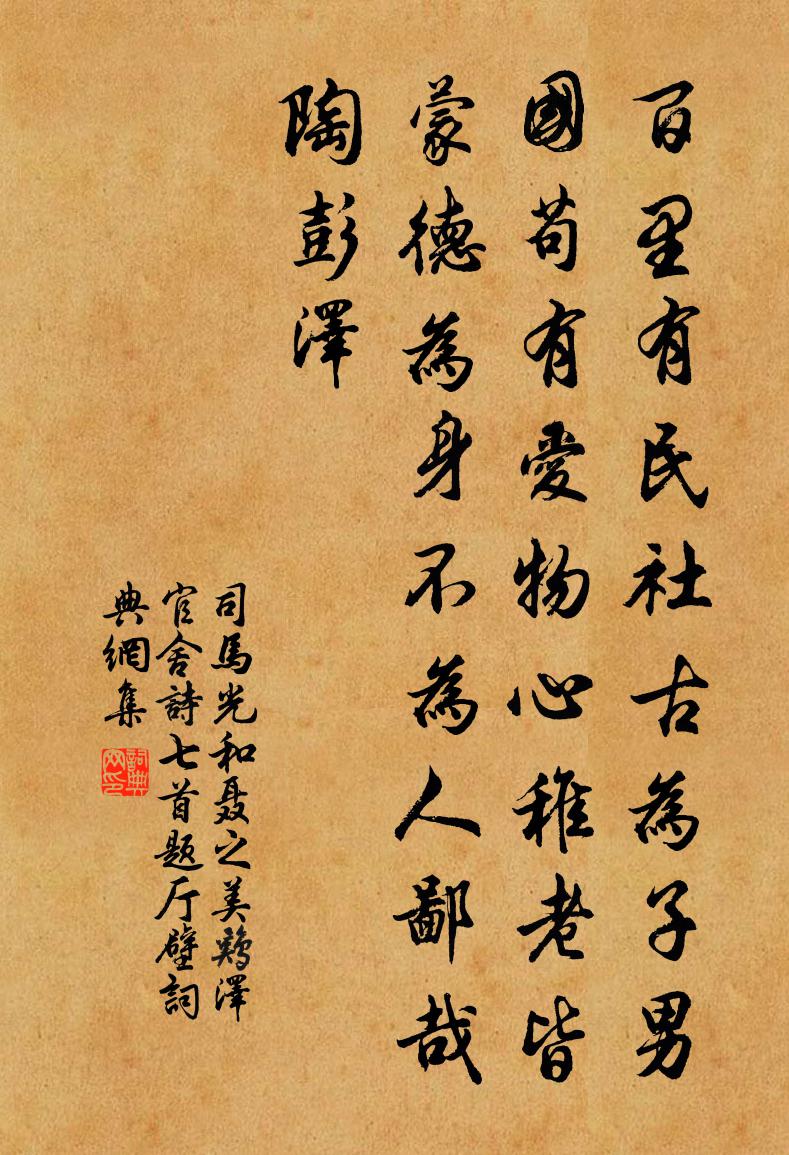 百里有民社古為子男
國苟有愛物心稚老皆
蒙德為身不為人鄙哉
陶彭澤
司馬光和聂之美鷄澤
官舍詩七首題厅壁詞
典網集
詞典网印